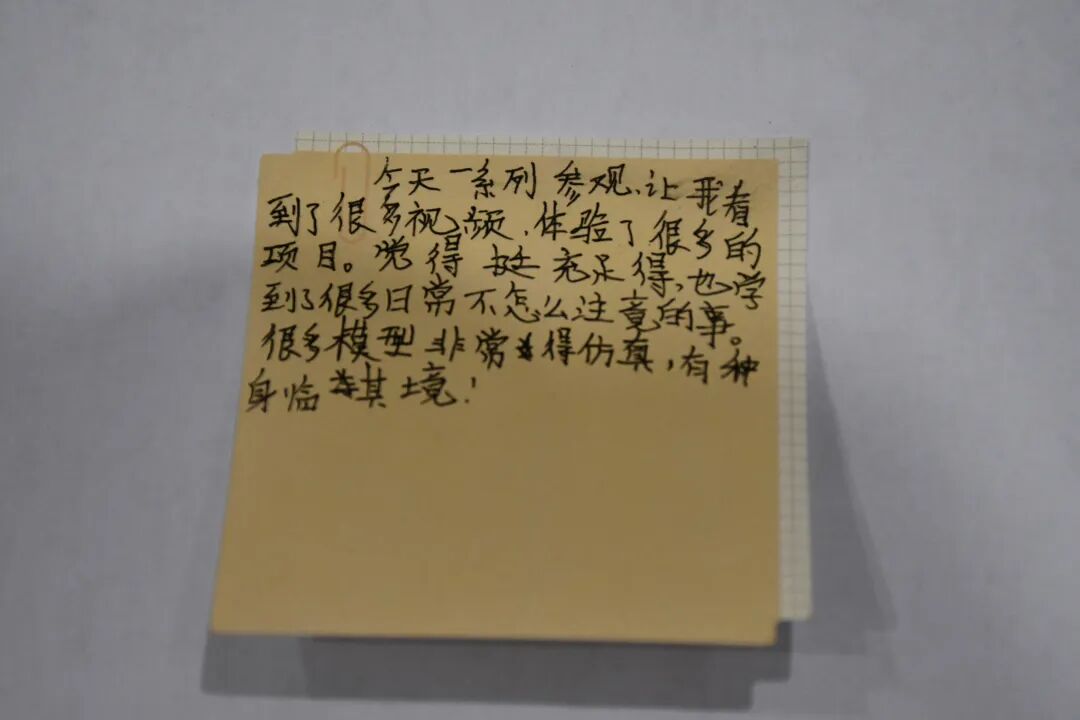 今天一系列参观、让我看
到了很多视频、体验了很多的
项目。觉得挺充足得,也学
到了很多日常不怎么注意的事。
很多模型非常得仿真,有种
身临其境!